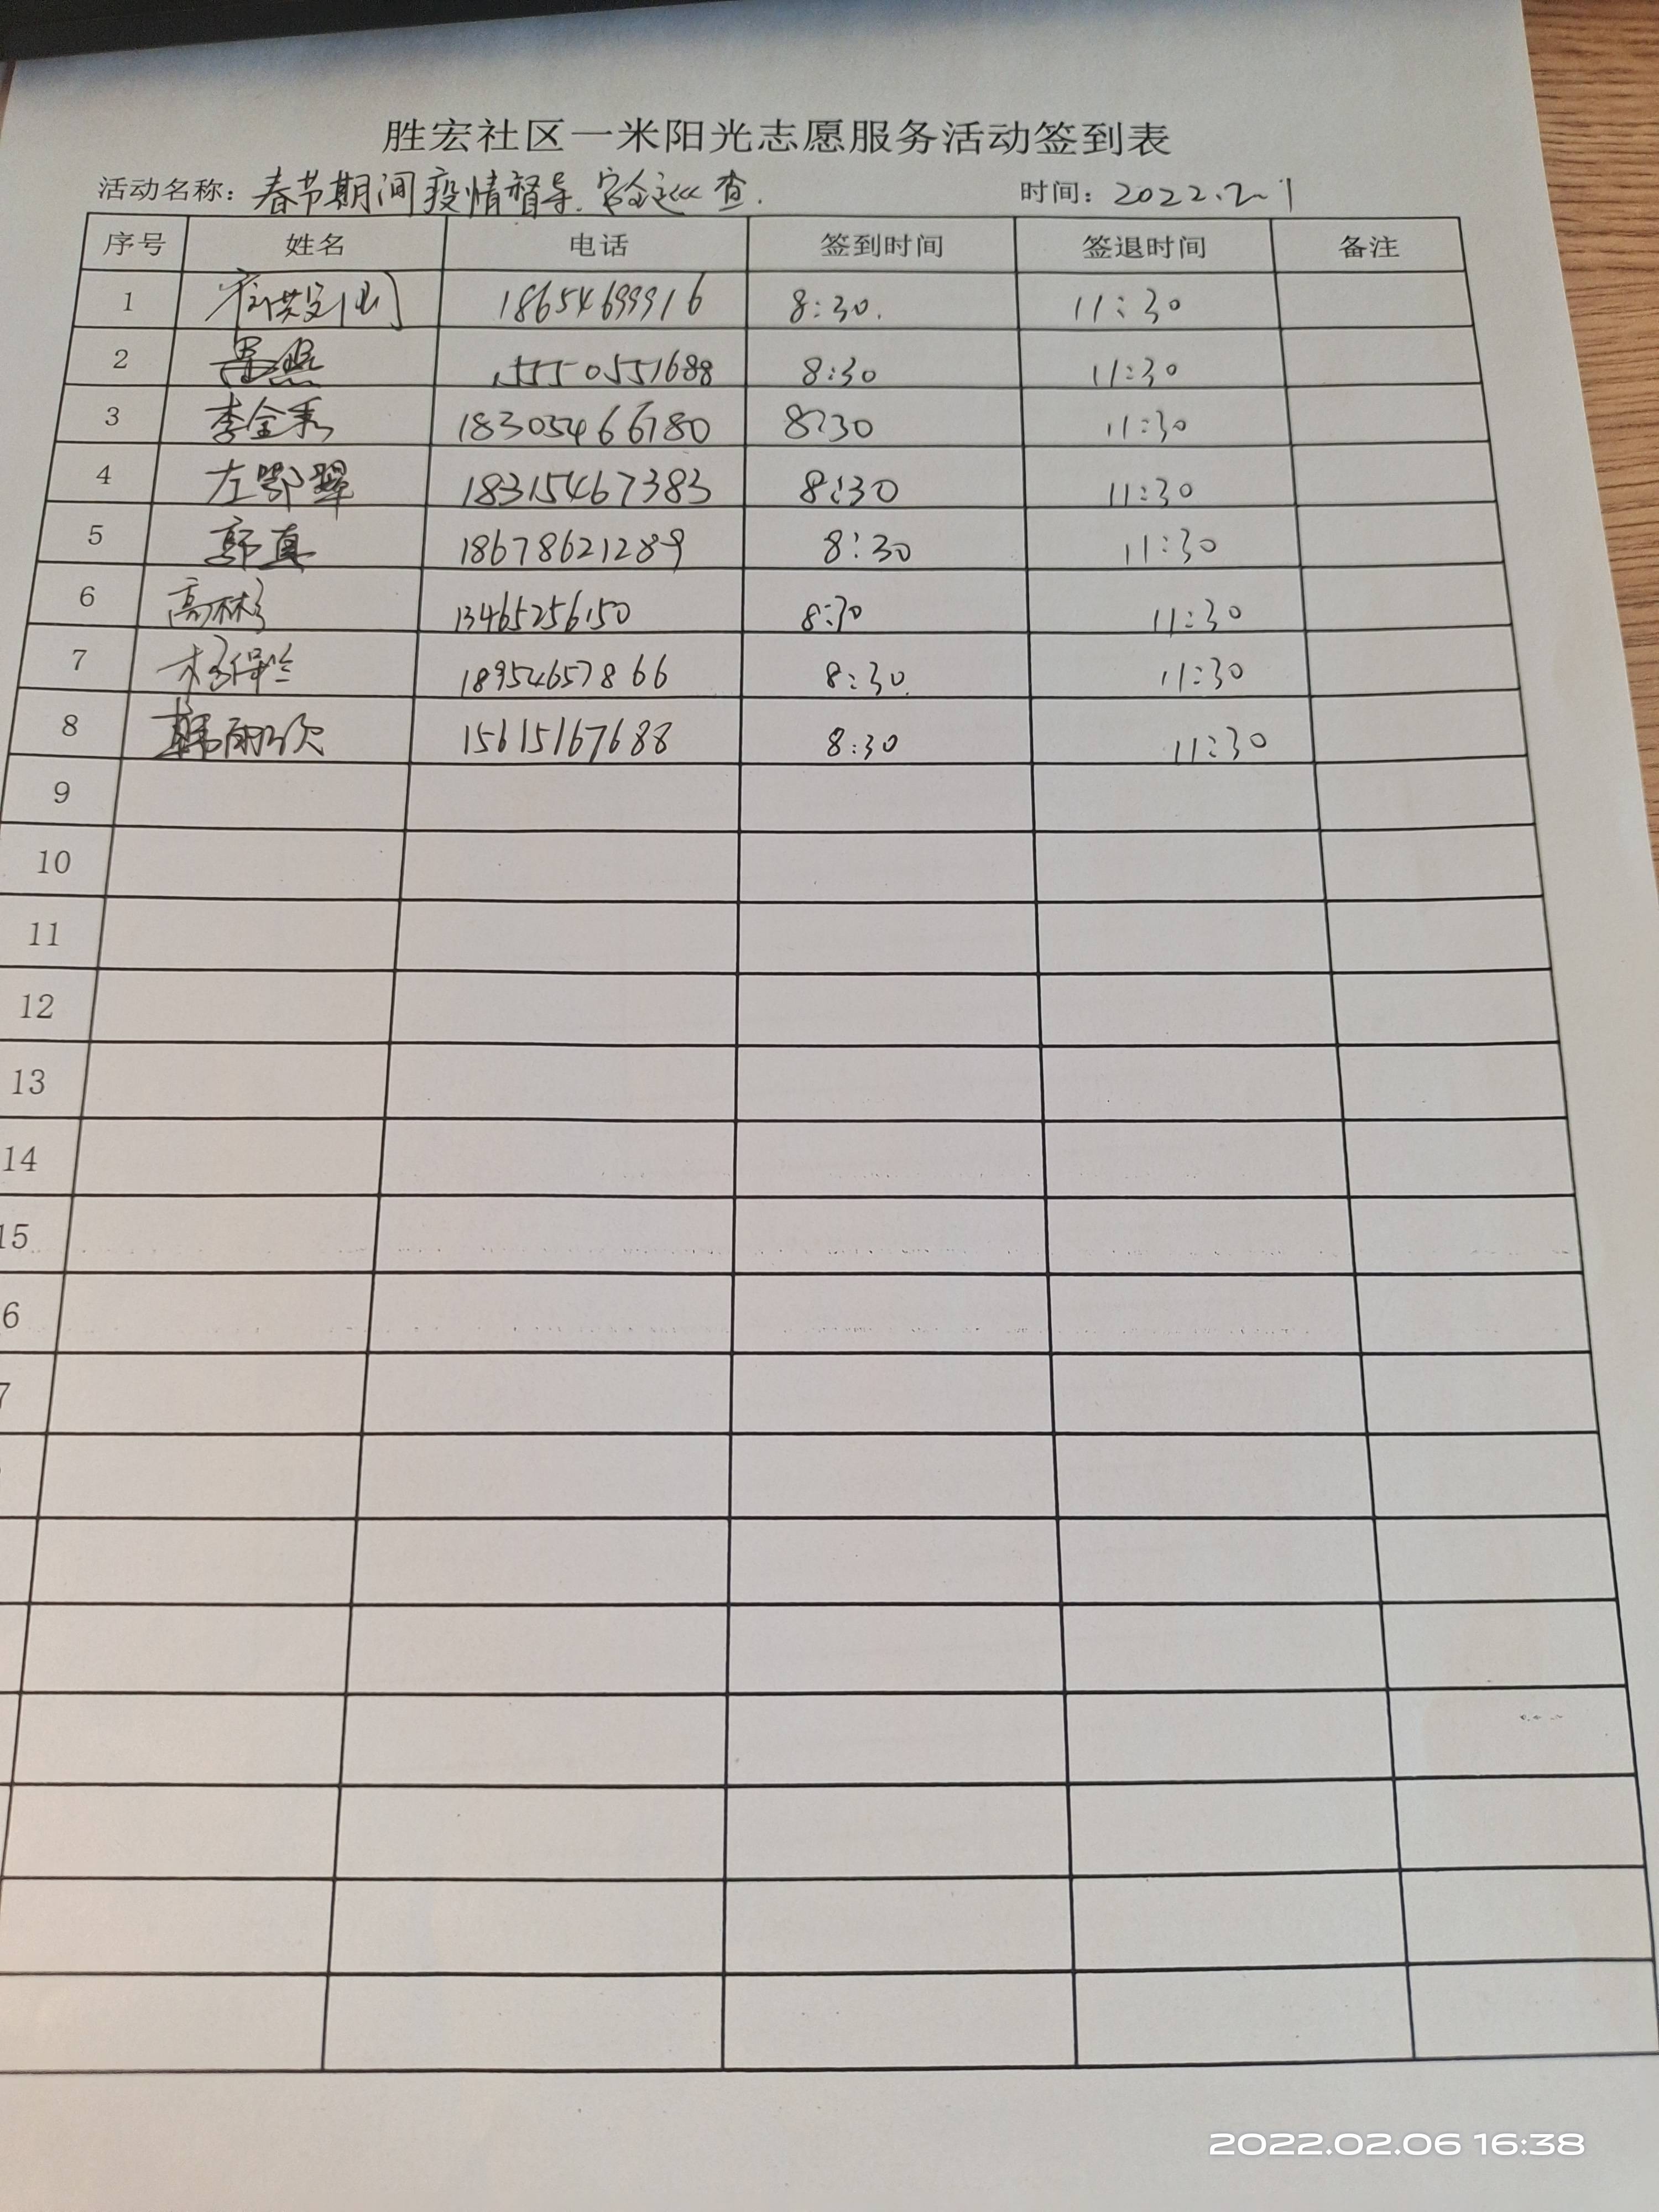 胜宏社区一米阳光志愿服务活动签到表
活动名称：春节期间疫情督导.安全巡查. 时间：2022.2.1
序号 姓名 电话 签到时间 签退时间 备注
1 18654699916 8:30. 11:30
2 15550551688 8:30 11:30
3 李金秀 18305466780 8:30 11:30
4 左鄂翠 18315467383 8:30 11:30
5 郭真 18678621289 8:30 11:30
6 高彬彬 13465256150 8:30 11:30
7 18954657866 8:30. 11:30
8 韩丽欣 15615167688 8:30 11:30
9
10
11
12
13
14
15
6
7
2022.02.06 16:38